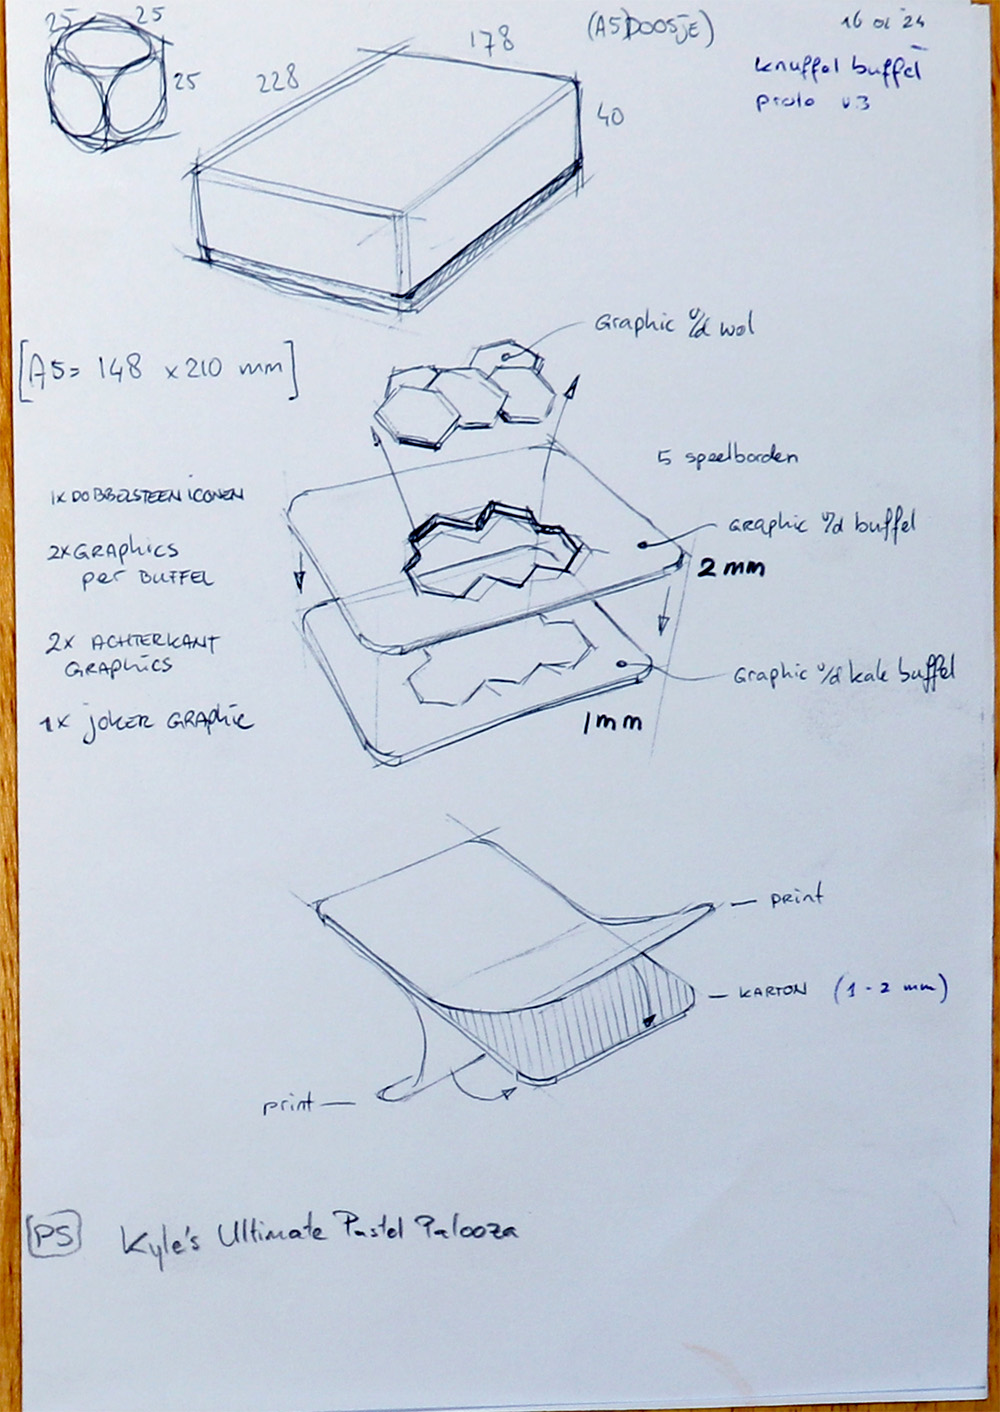 25 25
25
228
178
(A5 DOOSJE)
40
16 01 '24
knuffel buffel
proto v.3
[A5= 148 x 210 mm]
Graphic v/d wol
5 speelborden
1x DOBBELSTEEN ICONEN
2x GRAPHICS
per BUFFEL
2x ACHTERKANT
GRAPHICS
1x joKER GRAPHIC
GRAPHIC v/d buffel
2 mm
Graphic v/d kale buffel
1 mm
print
KARTON (1 - 2 mm)
print
PS Kyle's Ultimate Pastel Palooza